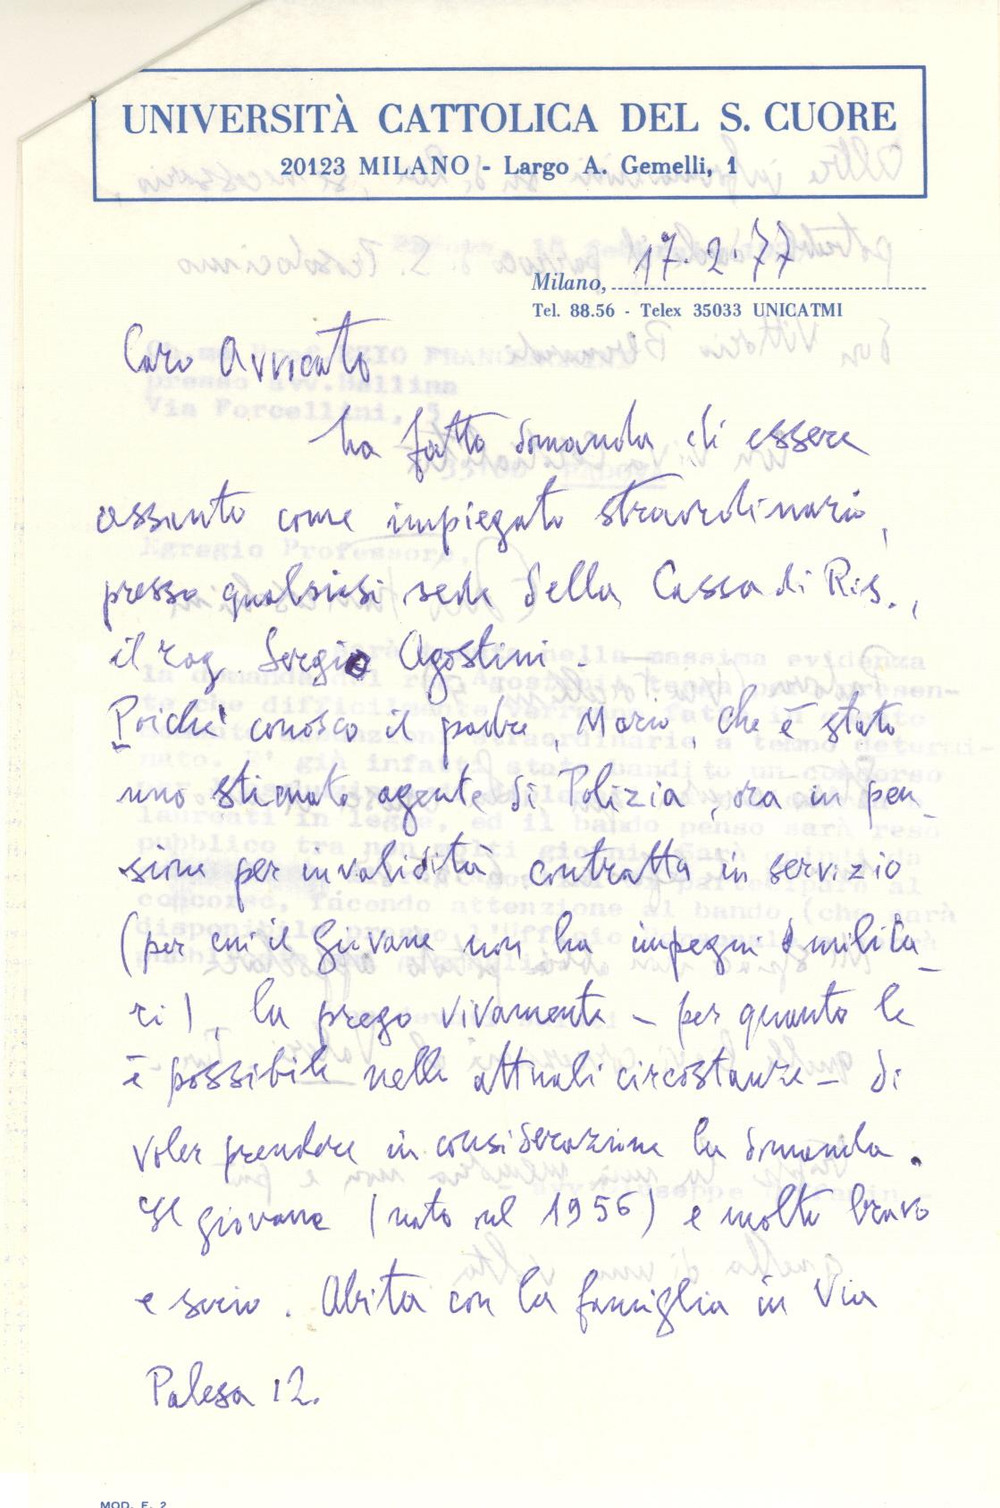 UNIVERSITÀ CATTOLICA DEL S. CUORE
20123 MILANO - Largo A. Gemelli, 1
Milano, 17. 2. 77
Tel. 88.56 - Telex 35033 UNICATMI
Caro Avvocato
ha fatto domanda di essere
assunto come impiegato straordinario,
presso qualsiasi sede della Cassa di Ris.,
il rag. Sergio Agostini.
Poiché conosco il padre, Mario, che è stato
uno stimato agente di Polizia, ora in pen_
sione per invalidità contratta in servizio
(per cui il giovane non ha impegni milita_
ri), la prego vivamente - per quanto le
è possibile nelle attuali circostanze - di
voler prendere in considerazione la domanda.
Il giovane (nato nel 1956) è molto bravo
e serio. Abita con la famiglia in Via
Palesa 12.
MOD. F. 2